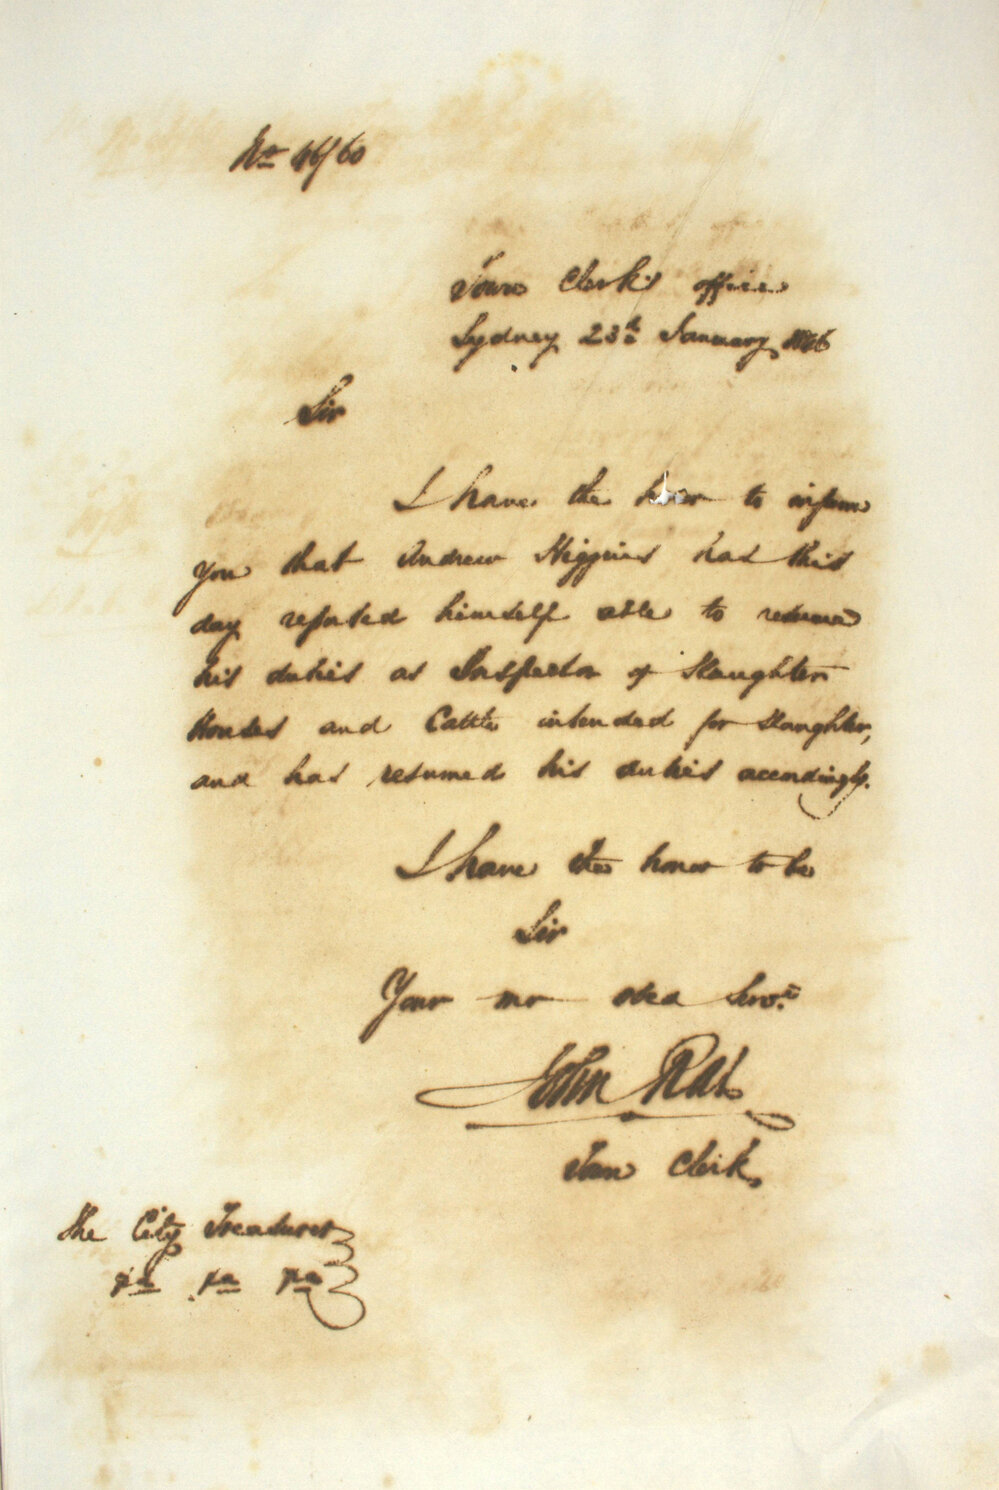 No 46/60
Town Clerk's office
Sydney 23d January 1846
Sir
I have the honor to inform
you that Andrew Higgins has this
day reported himself able to resume
his duties as Inspector of Slaughter
Houses and Cattle intended for Slaughter,
and has resumed his duties accordingly.
I have the honor to be
Sir
Your mo obed Servt
John Rae
Town Clerk,
The City Treasurer